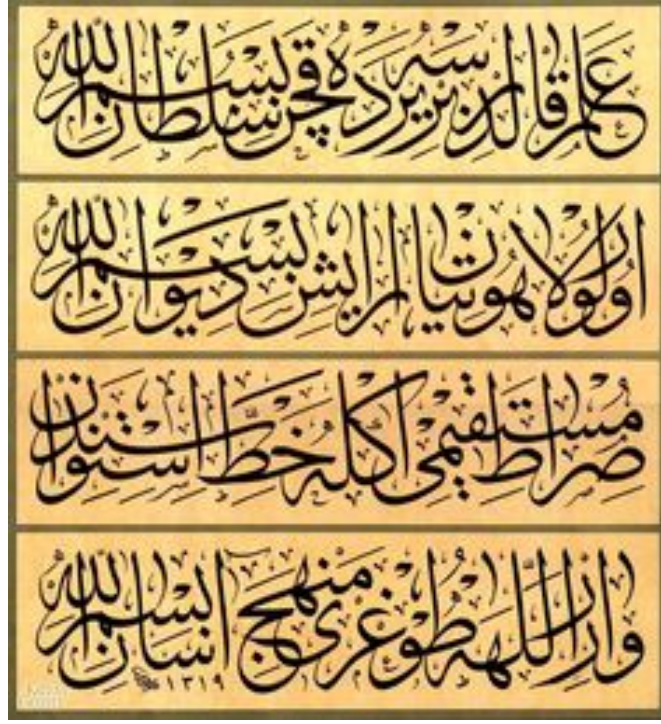 علم قالدرسه بر يرده قچن سلطان بسم الله
اولور لاهوتيان آرايش ديوان بسم الله
صراط مستقيمى اكله خط استواسندن
وارر اللهه طوغرى منهج انسان بسم الله ١٣١٩